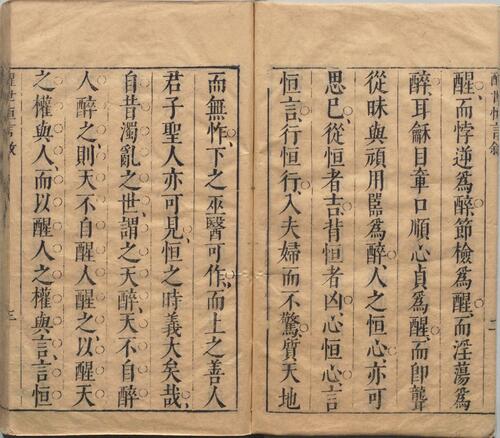 醒世恒言敘 二
醒、而悖逆爲醉、節檢爲醒、而淫蕩爲
醉、耳龢目章口順心貞爲醒、而卽聾
從昧與頑用嚚爲醉、人之恒心亦可
思已、從恒者吉、背恒者凶、心恒心言
恒言、行恒行、入夫婦而不驚、質天地
而無怍、下之巫醫可作、而上之善人
君子聖人亦可見、恒之時義大矣哉、
自昔濁亂之世、謂之天醉、天不自醉
人醉之、則天不自醒人醒之、以醒天
之權與人、而以醒人之權與言、言恒
醒世恒言敘 三